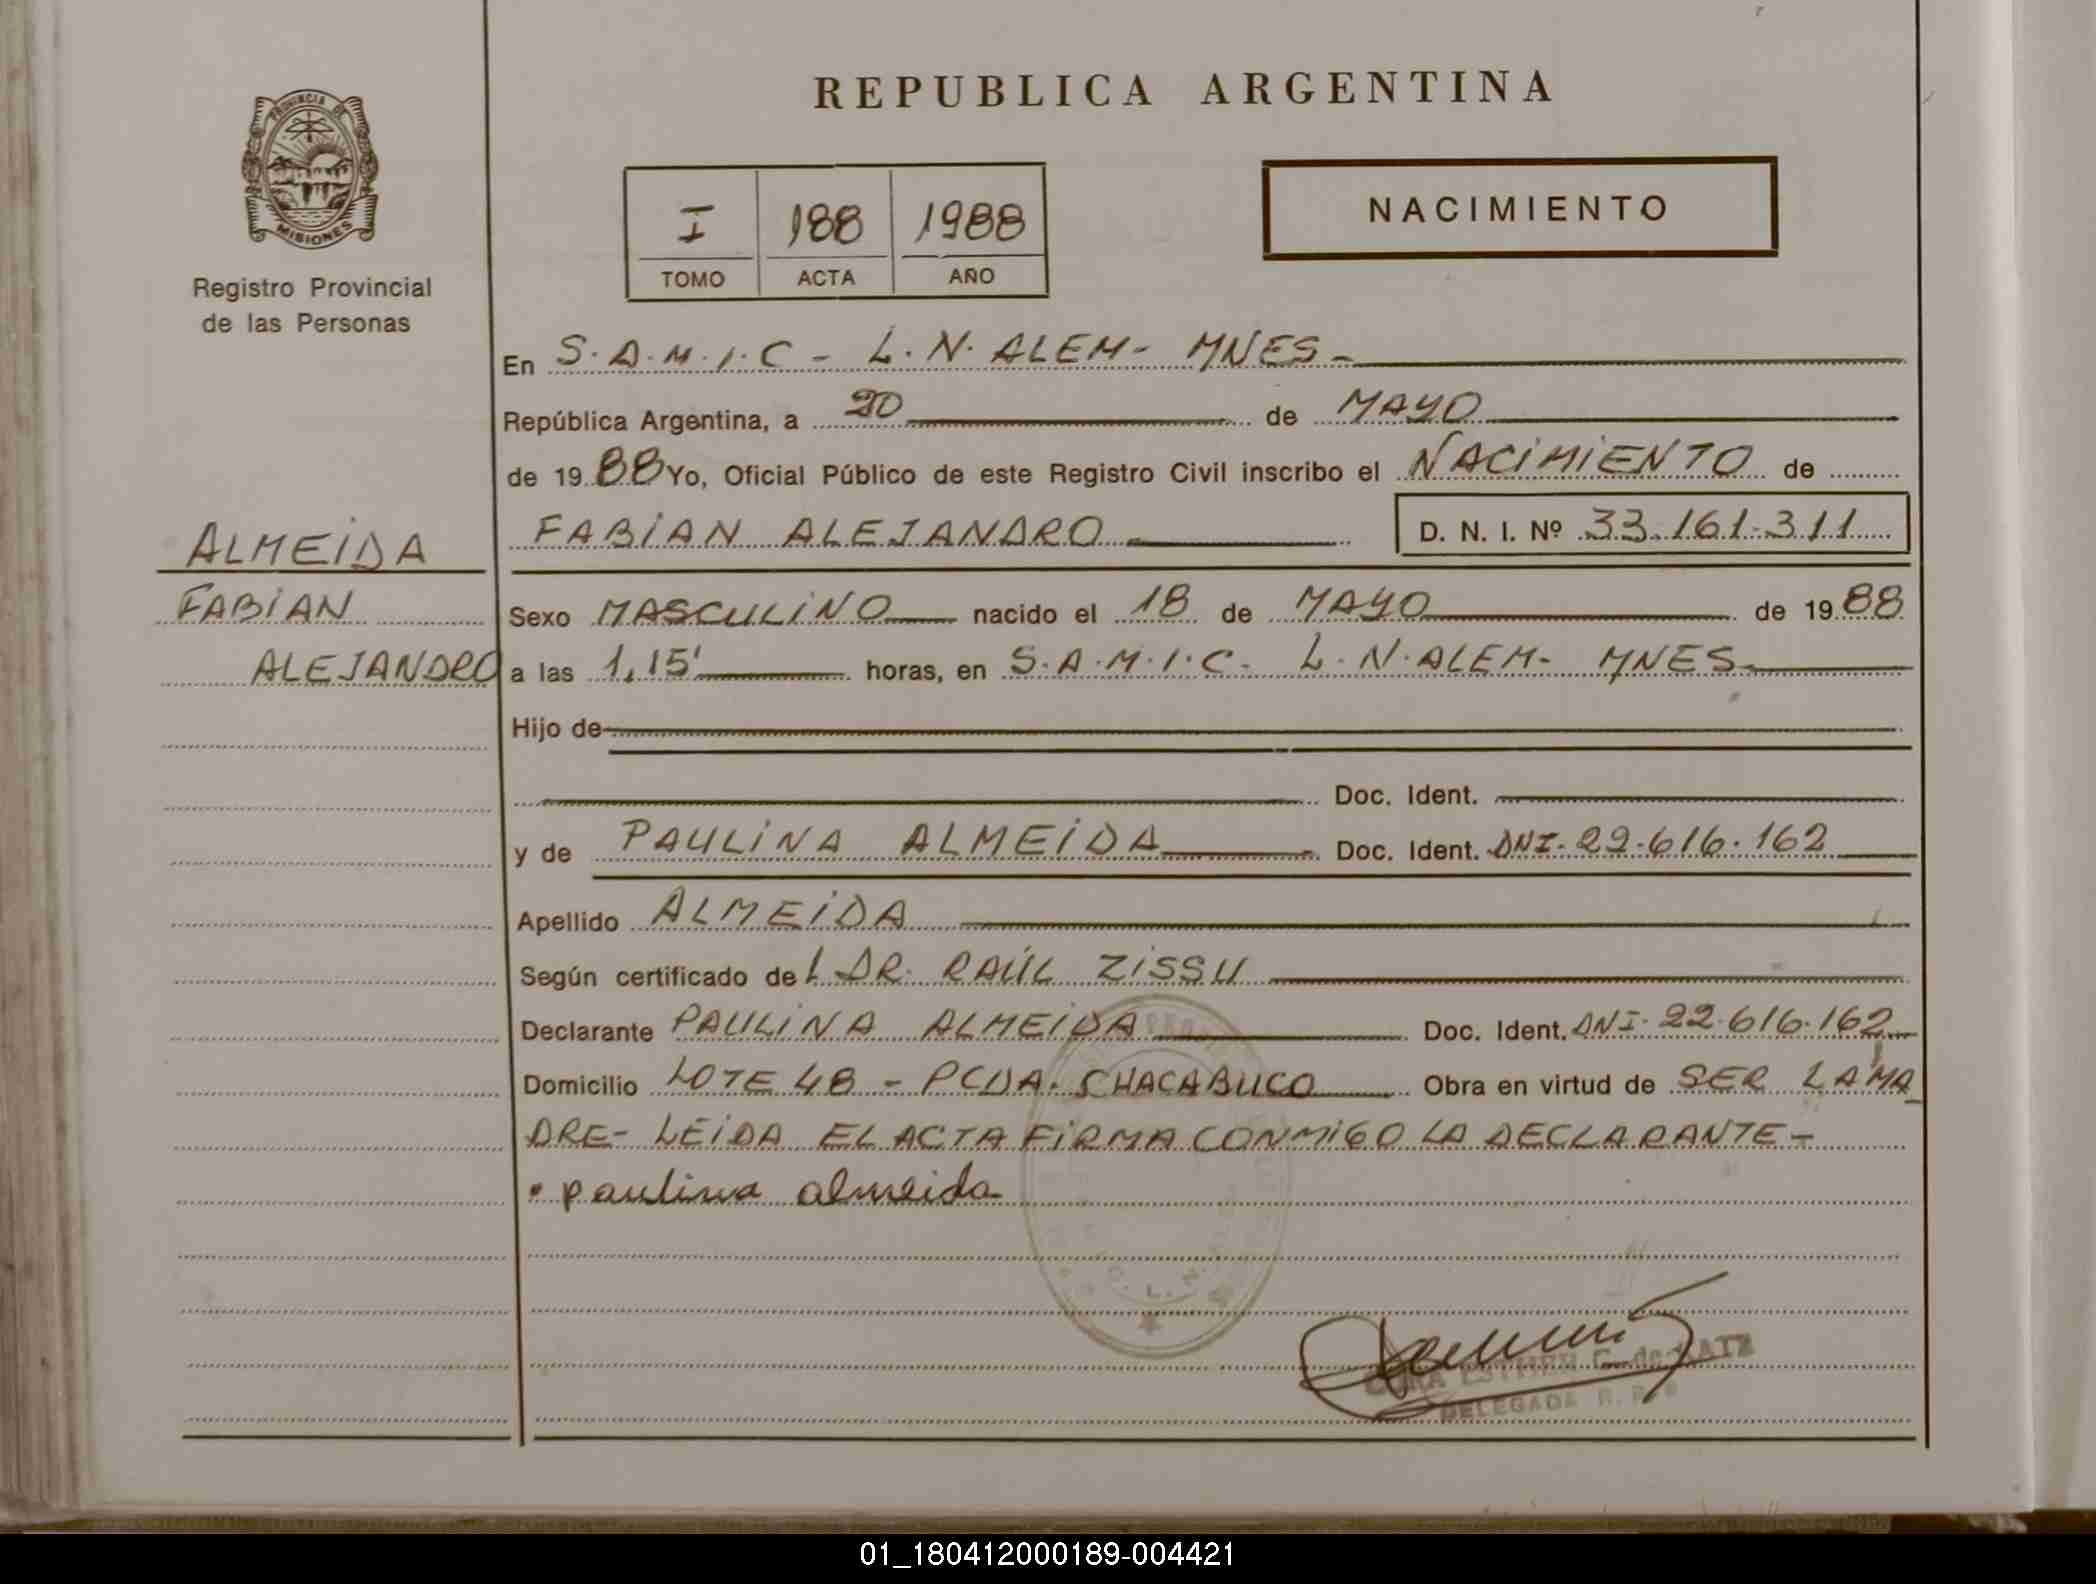 REPUBLICA ARGENTINA
PROVINCIA DE
MISIONES
Registro Provincial
de las Personas
I 188 1988
TOMO ACTA AÑO
NACIMIENTO
En S.A.M.I.C - L.N. ALEM - MNES -
República Argentina, a 20 de MAYO
de 19 88 Yo, Oficial Público de este Registro Civil inscribo el NACIMIENTO de
FABIAN ALEJANDRO D. N. I. Nº 33.161.311
ALMEIDA
FABIAN
ALEJANDRO
Sexo MASCULINO nacido el 18 de MAYO de 19 88
a las 1,15' horas, en S.A.M.I.C - L.N. ALEM - MNES -
Hijo de
Doc. Ident.
y de PAULINA ALMEIDA Doc. Ident. DNI. 22.616.162
Apellido ALMEIDA
Según certificado de L DR. RAÚL ZISSU
Declarante PAULINA ALMEIDA Doc. Ident. DNI. 22.616.162
Domicilio LOTE 48 - PCDA. CHACABUCO Obra en virtud de SER LA MA
DRE - LEIDA EL ACTA FIRMA CONMIGO LA DECLARANTE -
paulina almeida
ESTHER C. de KATZ
DELEGADA
01_180412000189-004421